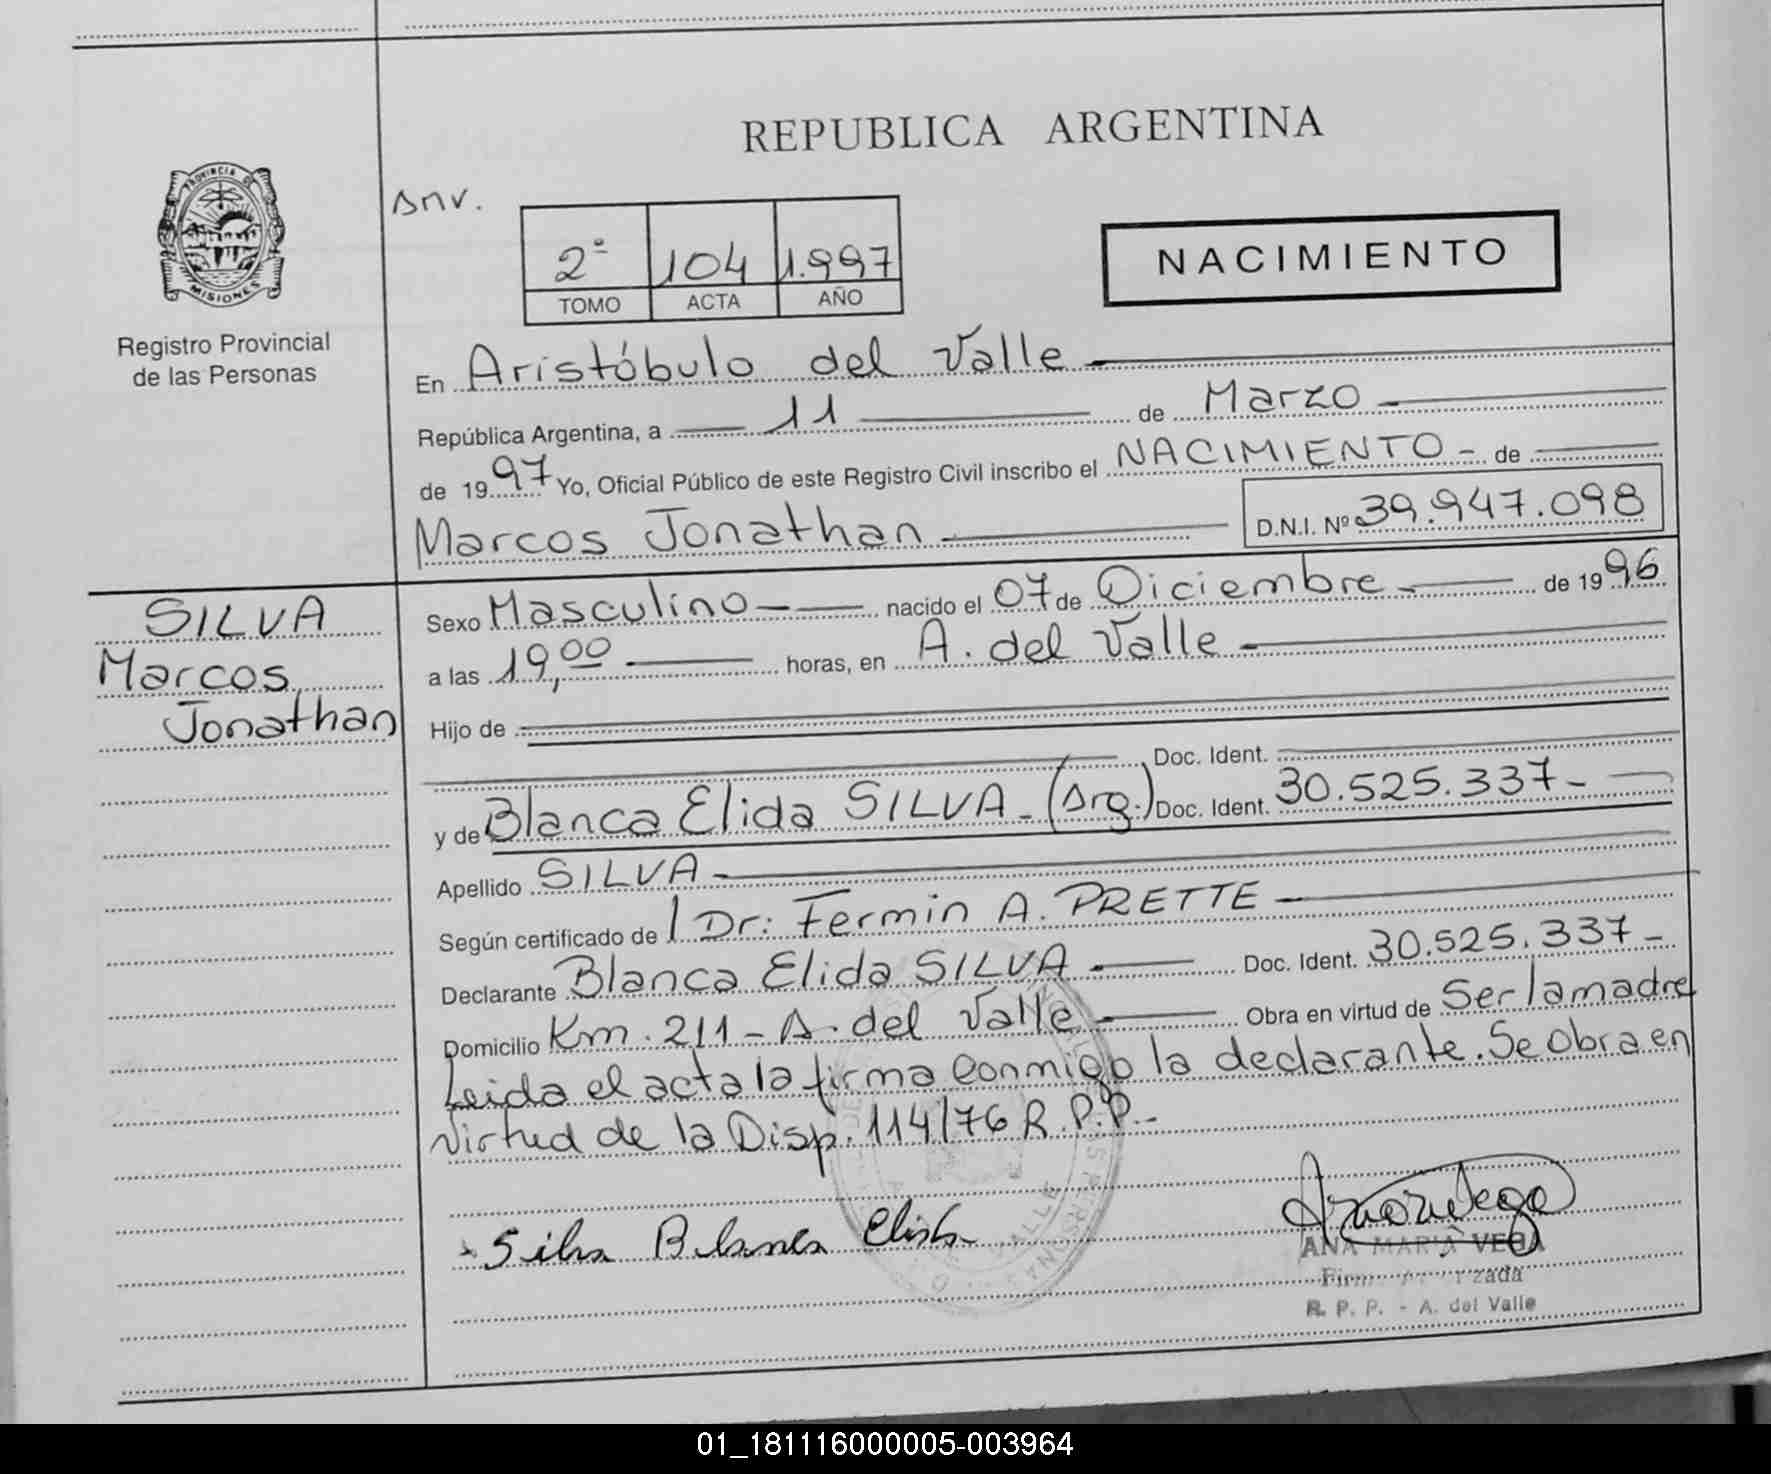 REPUBLICA ARGENTINA
PROVINCIA DE
MISIONES
Registro Provincial
de las Personas
Anv.
2º 104 1.997
TOMO ACTA AÑO
NACIMIENTO
En Aristóbulo del Valle
República Argentina, a 11 de Marzo
de 1997 Yo, Oficial Público de este Registro Civil inscribo el NACIMIENTO - de
Marcos Jonathan D.N.I. Nº 39.947.098
SILVA
Marcos
Jonathan
Sexo Masculino nacido el 07 de Diciembre de 1996
a las 19,00 horas, en A. del Valle
Hijo de
Doc. Ident.
y de Blanca Elida SILVA - (Arg.) Doc. Ident. 30.525.337-
Apellido SILVA
Según certificado de l Dr: Fermin A. PRETTE
Declarante Blanca Elida SILVA Doc. Ident. 30.525.337-
Domicilio Km. 211 - A. del Valle Obra en virtud de Ser la madre
Leida el acta la firma conmigo la declarante. Se obra en
virtud de la Disp. 114/76 R.P.P.-
Silva Blanca Elida
ANA MARIA VEGA
R. P. P. - A. del Valle
01_181116000005-003964